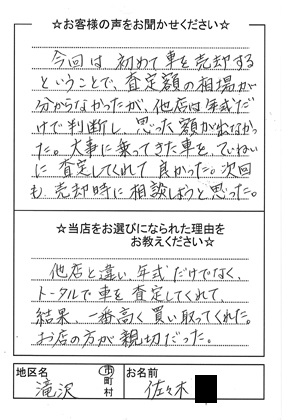 ☆お客様の声をお聞かせください☆
今回は初めて車を売却する
ということで、査定額の相場が
分からなかったが、他店は年式だ
けで判断し、思った額が出なかっ
た。大事に乗ってきた車を、ていねい
に査定してくれて良かった。次回
も売却時に相談しようと思った。
☆当店をお選びになられた理由を
お教えください☆
他店と違い、年式だけでなく、
トータルで車を査定してくれて、
結果、一番高く買い取ってくれた。
お店の方が親切だった。
地区名
滝沢 市町村
お名前
佐々木